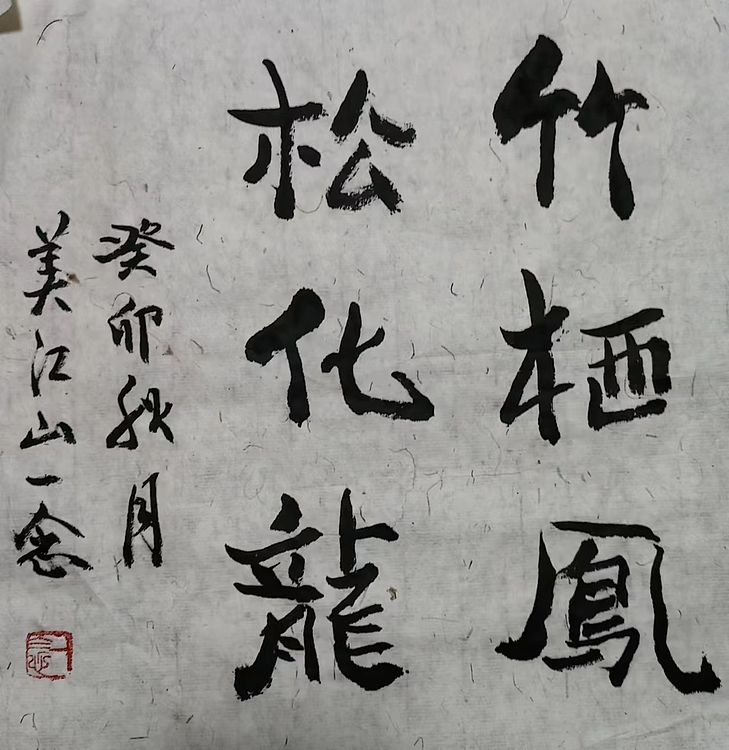 竹栖鳳
松化龍
癸卯秋月
美江山一念